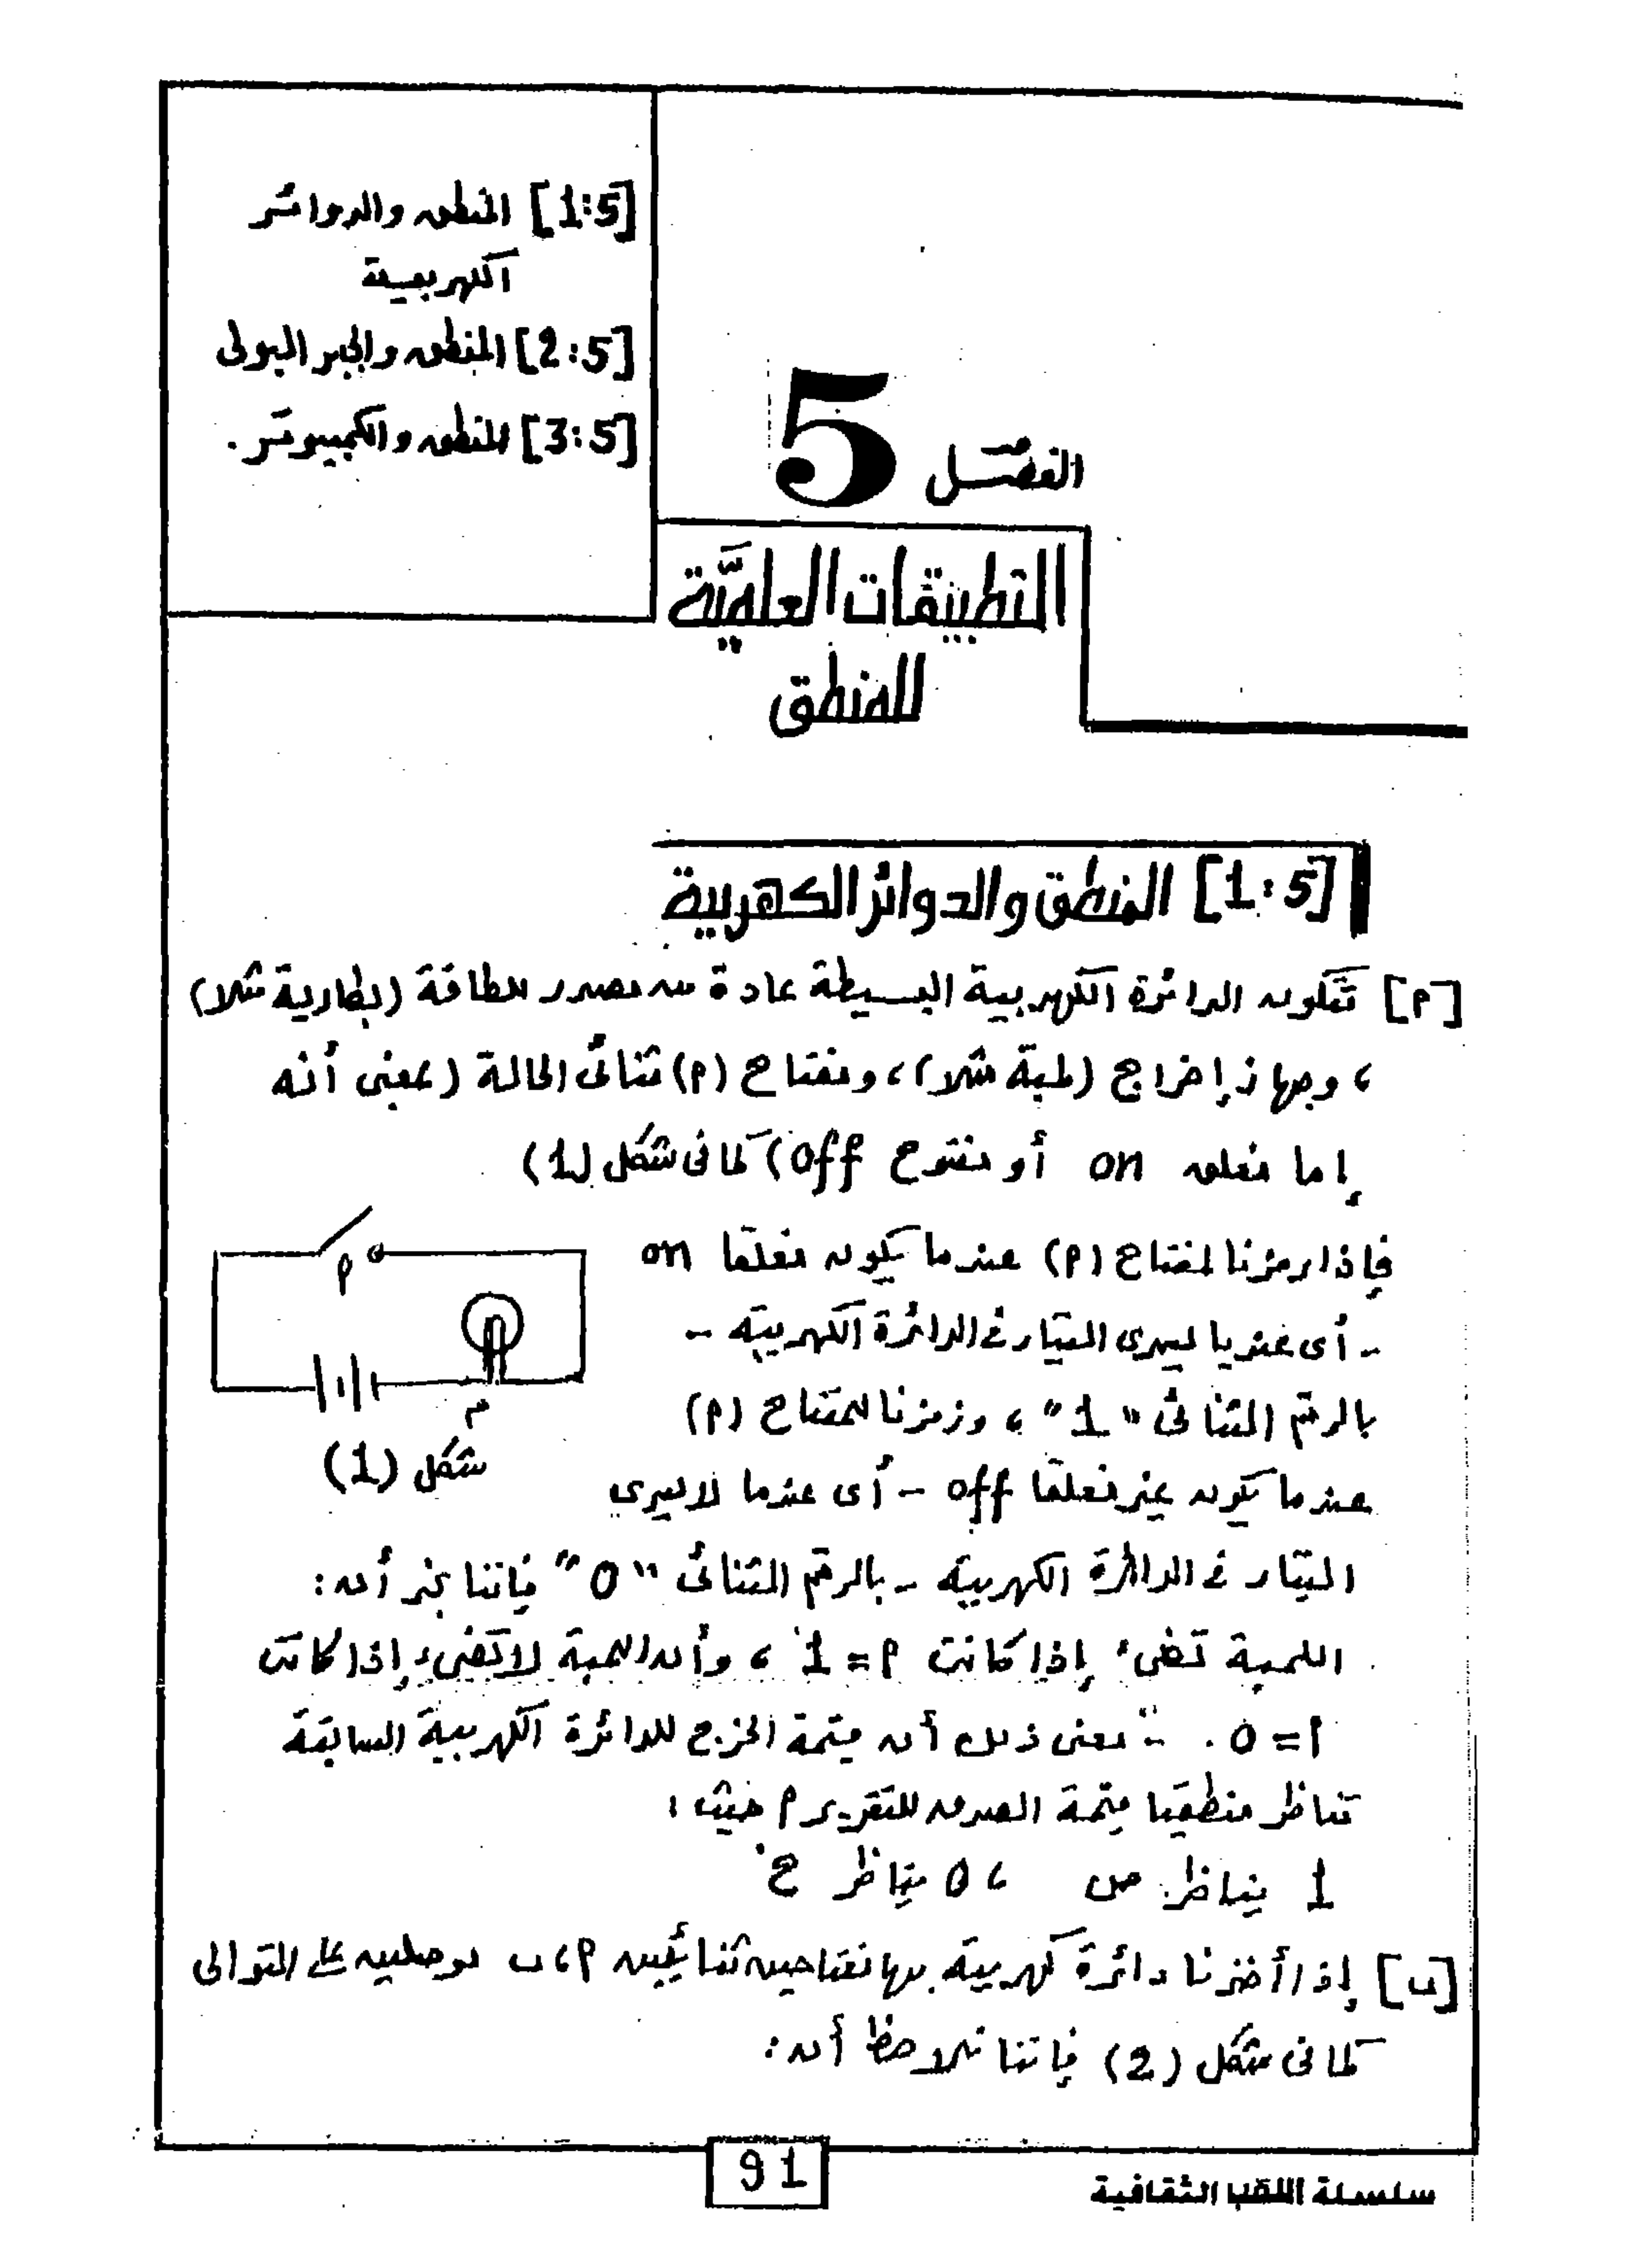 [1:5] المنطق والدوائر
الكهربية
[2:5] المنطق والجبر البولى
[3:5] المنطق والكمبيوتر.
الفصل 5
التطبيقات العلميَّة
للمنطق
[1:5] المنطق والدوائر الكهربية
[م] تتكون الدائرة الكهربية البسيطة عادة من مصدر للطاقة (بطارية مثلا)
، وجهاز إخراج (لمبة مثلا)، ومفتاح (م) ثنائى الحالة (بمعنى أنه
إما مغلق on أو مفتوح off) كما فى شكل (1)
فإذا رمزنا لمفتاح (م) عندما يكون مغلقا on
- أى عندما يسرى التيار فى الدائرة الكهربية -
بالرقم الثنائى "1" ، ورمزنا للمفتاح (م)
عندما يكون غير مغلقا off - أى عندما لا يسرى
م
م
شكل (1)
التيار فى الدائرة الكهربية - بالرقم الثنائى "0" فإننا نجد أن:
اللمبة تضىء إذا كانت م = 1 ، وأن اللمبة لا تضىء إذا كانت
م = 0 . ∴ معنى ذلك أن قيمة الخرج للدائرة الكهربية السابقة
تناظر منطقيا قيمة الصدق للتقرير م حيث:
1 يناظر ص ، 0 يناظر خ
[ب] إذا أخذنا دائرة كهربية بها مفتاحين ثنائيين م ، ب موصلين على التوالى
كما فى شكل (2) فإننا نلاحظ أن:
91
سلسلة اللقب الثقافية